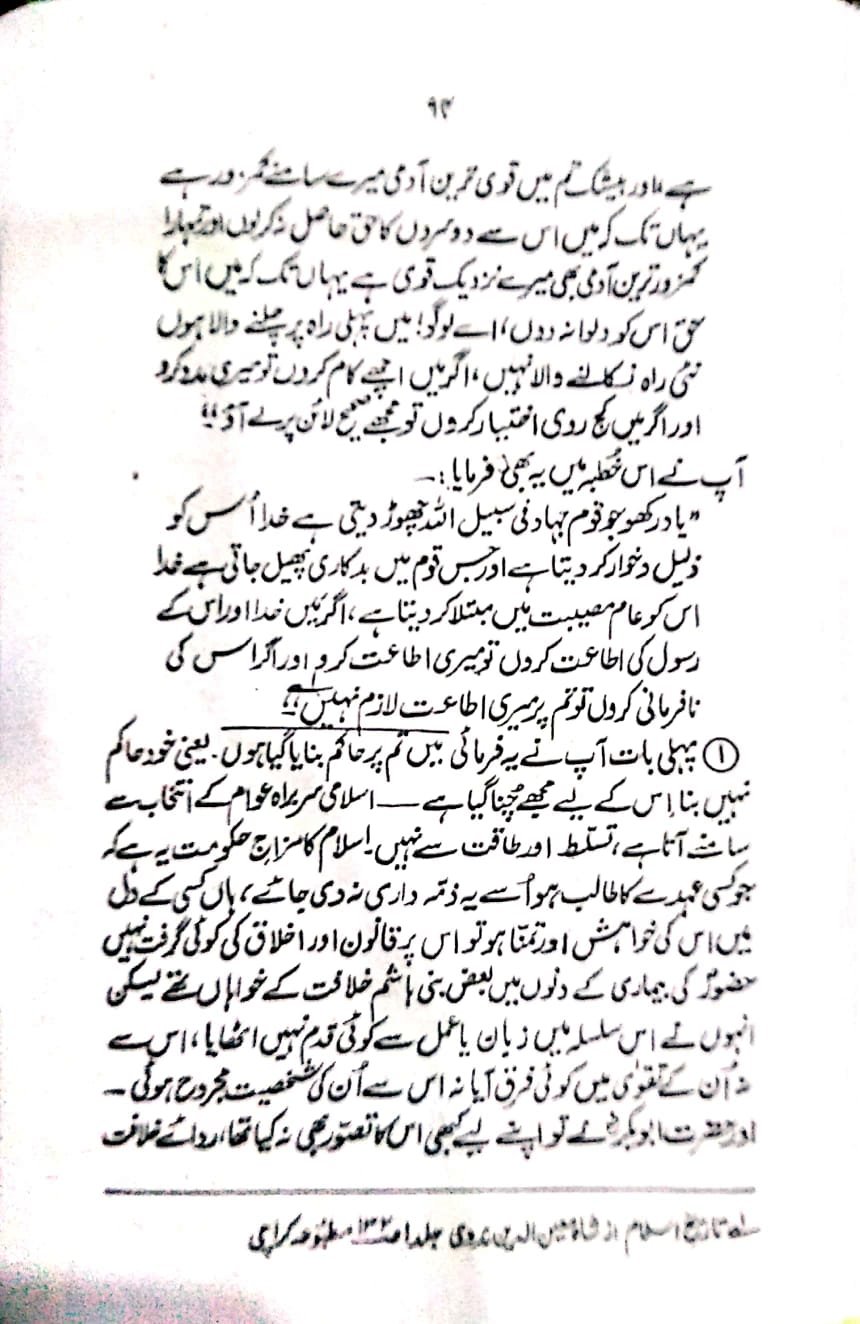 ۹۲
ہے اور بیشک تم میں قوی ترین آدمی میرے سامنے کمزور ہے
یہاں تک کہ میں اس سے دوسروں کا حق حاصل نہ کر لوں اور تمہارا
کمزور ترین آدمی بھی میرے نزدیک قوی ہے یہاں تک کہ میں اس کا
حق اس کو دلوا نہ دوں، اے لوگو! میں پہلی راہ پر چلنے والا ہوں
نئی راہ نکالنے والا نہیں، اگر میں اچھے کام کروں تو میری مدد کرو
اور اگر میں کج روی اختیار کروں تو مجھے صحیح لائن پر لے آؤ“
آپ نے اس خطبہ میں یہ بھی فرمایا:۔
”یاد رکھو جو قوم جہاد فی سبیل اللہ چھوڑ دیتی ہے خدا اُس کو
ذلیل و خوار کر دیتا ہے اور جس قوم میں بدکاری پھیل جاتی ہے خدا
اس کو عام مصیبت میں مبتلا کر دیتا ہے، اگر میں خدا اور اس کے
رسول کی اطاعت کروں تو میری اطاعت کرو اور اگر اس کی
نافرمانی کروں تو تم پر میری اطاعت لازم نہیں“
① پہلی بات آپ نے یہ فرمائی میں تم پر حاکم بنایا گیا ہوں۔ یعنی خود حاکم
نہیں بنا اِس کے لیے مجھے چُنا گیا ہے — اسلامی سربراہ عوام کے انتخاب سے
سامنے آتا ہے، تسلط اور طاقت سے نہیں۔ اسلام کا مزاج حکومت یہ ہے کہ
جو کسی عہدے کا طالب ہو اُسے یہ ذمہ داری نہ دی جائے، ہاں کسی کے دل
میں اس کی خواہش اور تمنّا ہو تو اس پر قانون اور اخلاق کی کوئی گرفت نہیں
حضورؐ کی بیماری کے دنوں میں بعض بنی ہاشم خلافت کے خواہاں تھے لیکن
انہوں نے اس سلسلہ میں زبان یا عمل سے کوئی قدم نہیں اٹھایا، اس سے
نہ اُن کے تقویٰ میں کوئی فرق آیا نہ اس سے اُن کی شخصیت مجروح ہوئی۔
اور حضرت ابوبکرؓ نے تو اپنے لیے کبھی اس کا تصوّر بھی نہ کیا تھا، ردائے خلافت
لہ تاریخ اسلام از شاہ معین الدین ندوی جلد ا ص۱۳۲ مطبوعہ کراچی